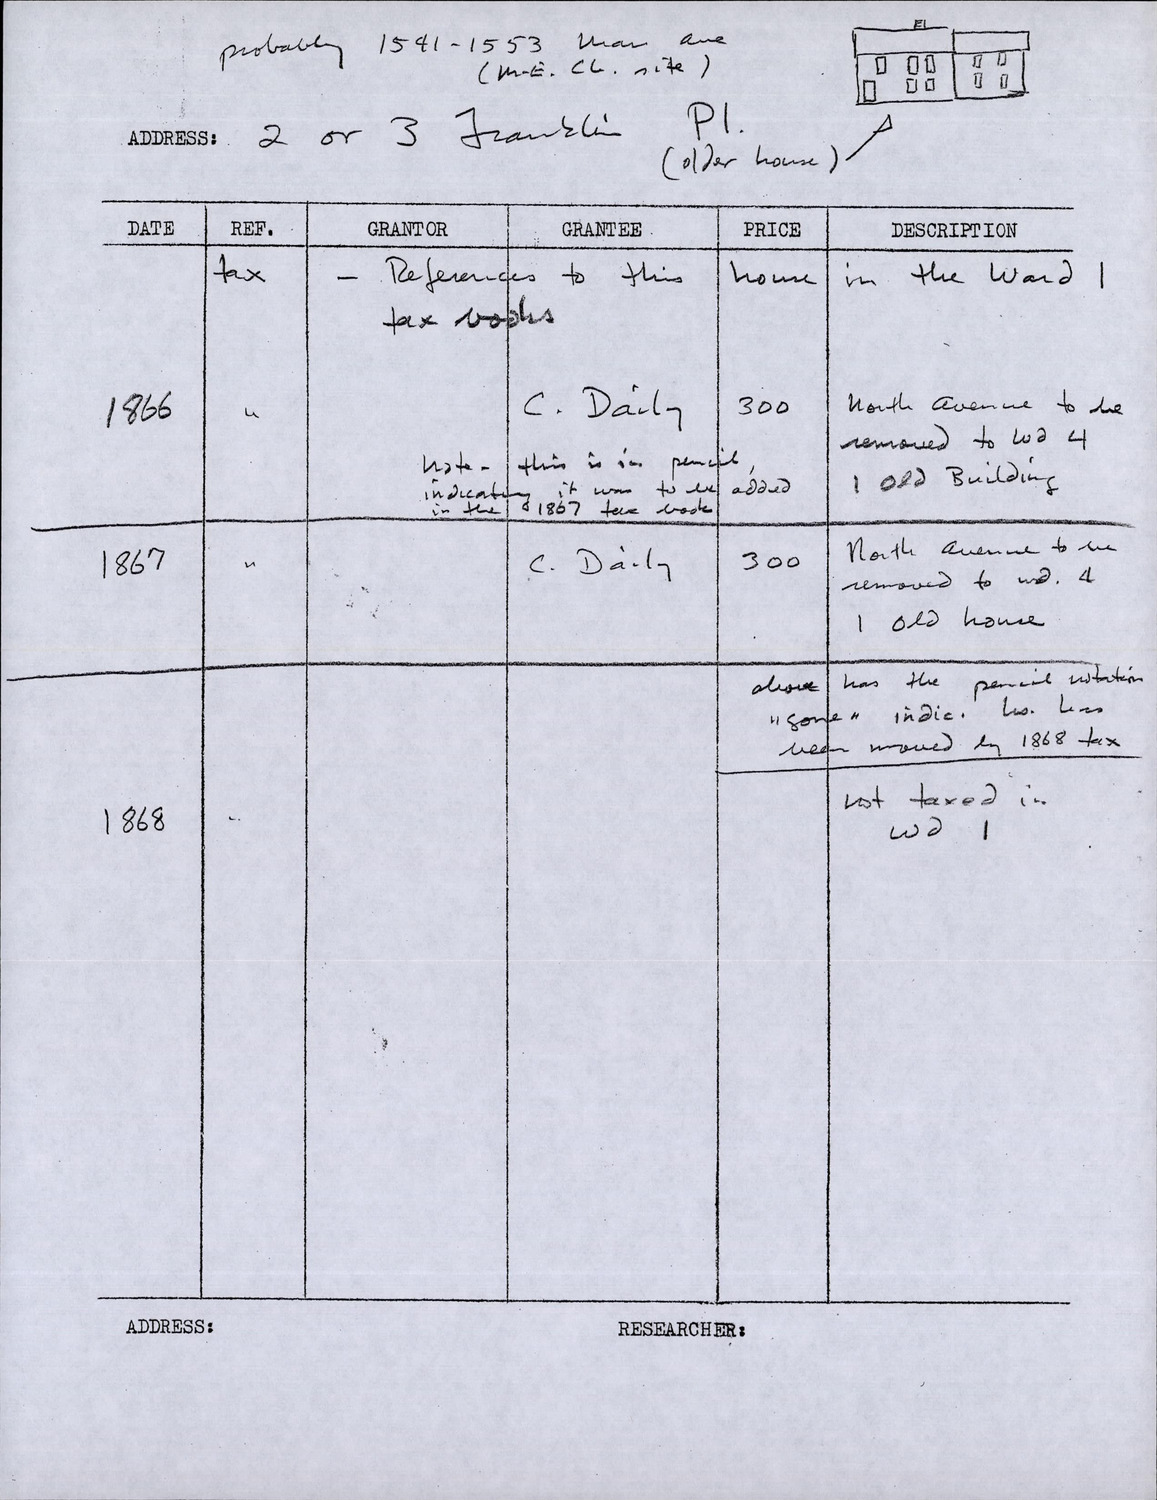 probably 1541-1553 Mass ave
(M.E. Ch. site)
ADDRESS: 2 or 3 Franklin Pl.
(older house)
DATE REF. GRANTOR GRANTEE PRICE DESCRIPTION
tax - References to this house in the Ward 1
tax books
1866 " C. Daily 300 North avenue to be
removed to wd 4
1 old Building
Note - this is in pencil,
indicating it was to be added
in the 1867 tax book
1867 " C. Daily 300 North avenue to be
removed to wd. 4
1 old house
above has the pencil notation
"gone" indic. ho. has
been moved by 1868 tax
1868 " not taxed in
wd 1
ADDRESS: RESEARCHER: